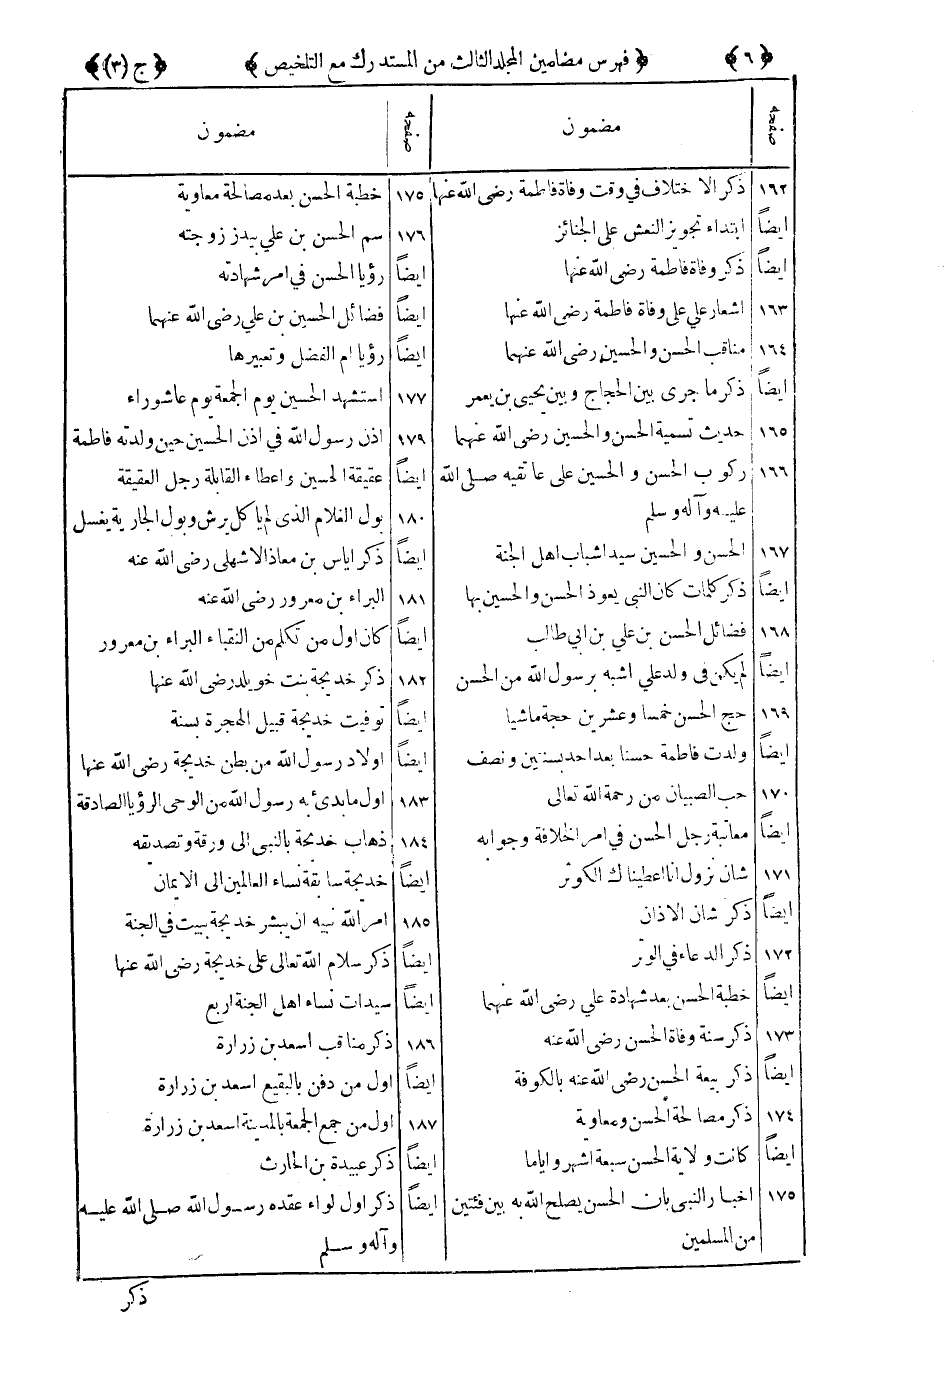 ﴿ ٦ ﴾ ﴿ فهرس مضامين المجلد الثالث من المستدرك مع التلخيص ﴾ ﴿ ج (٣) ﴾
صفحه مضمون
١٦٢ ذكر الاختلاف في وقت وفاة فاطمة رضى الله عنها
ايضاً ابتداء تجويز النعش على الجنائز
ايضاً ذكر وفاة فاطمة رضى الله عنها
١٦٣ اشعار علي على وفاة فاطمة رضى الله عنها
١٦٤ مناقب الحسن والحسين رضى الله عنهما
ايضاً ذكر ما جرى بين الحجاج وبين يحيى بن يعمر
١٦٥ حديث تسمية الحسن والحسين رضى الله عنهما
١٦٦ ركوب الحسن و الحسين على عاتقيه صلى الله
عليه وآله وسلم
١٦٧ الحسن و الحسين سيدا شباب اهل الجنة
ايضاً ذكر كلمات كان النبى يعوذ الحسن والحسين بها
١٦٨ فضائل الحسن بن علي بن ابي طالب
ايضاً لم يكن فى ولد علي اشبه برسول الله من الحسن
١٦٩ حج الحسن خمسا وعشرين حجة ماشيا
ايضاً ولدت فاطمة حسنا بعد احد بسنتين ونصف
١٧٠ حب الصبيان من رحمة الله تعالى
ايضاً معاتبة رجل الحسن في امر الخلافة وجوابه
١٧١ شان نزول انا اعطيناك الكوثر
ايضاً ذكر شان الاذان
١٧٢ ذكر الدعاء في الوتر
ايضاً خطبة الحسن بعد شهادة علي رضى الله عنهما
١٧٣ ذكر سنة وفاة الحسن رضى الله عنه
ايضاً ذكر بيعة الحسن رضى الله عنه بالكوفة
١٧٤ ذكر مصالحة الحسن ومعاوية
ايضاً كانت ولاية الحسن سبعة اشهر واياما
١٧٥ اخبار النبى بان الحسن يصلح الله به بين فئتين
من المسلمين
صفحه مضمون
١٧٥ خطبة الحسن بعد مصالحة معاوية
١٧٦ سم الحسن بن علي بيد زوجته
ايضاً رؤيا الحسن في امر شهادته
ايضاً فضائل الحسين بن علي رضى الله عنهما
ايضاً رؤيا ام الفضل وتعبيرها
١٧٧ استشهد الحسين يوم الجمعة يوم عاشوراء
١٧٩ اذن رسول الله في اذن الحسين حين ولدته فاطمة
ايضاً عقيقة الحسين واعطاء القابلة رجل العقيقة
١٨٠ بول الغلام الذى لم ياكل يرش وبول الجارية يغسل
ايضاً ذكر اياس بن معاذ الاشهلى رضى الله عنه
١٨١ البراء بن معرور رضى الله عنه
ايضاً كان اول من تكلم من النقباء البراء بن معرور
١٨٢ ذكر خديجة بنت خويلد رضى الله عنها
ايضاً توفيت خديجة قبيل الهجرة بسنة
ايضاً اولاد رسول الله من بطن خديجة رضى الله عنها
١٨٣ اول ما بدئ به رسول الله من الوحى الرؤيا الصادقة
١٨٤ ذهاب خديجة بالنبى الى ورقة وتصديقه
ايضاً خديجة سابقة نساء العالمين الى الايمان
١٨٥ امر الله نبيه ان يبشر خديجة ببيت في الجنة
ايضاً ذكر سلام الله تعالى على خديجة رضى الله عنها
ايضاً سيدات نساء اهل الجنة اربع
١٨٦ ذكر مناقب اسعد بن زرارة
ايضاً اول من دفن بالبقيع اسعد بن زرارة
١٨٧ اول من جمع الجمعة بالمدينة اسعد بن زرارة
ايضاً ذكر عبيدة بن الحارث
ايضاً ذكر اول لواء عقده رسول الله صلى الله عليه
وآله وسلم
ذكر